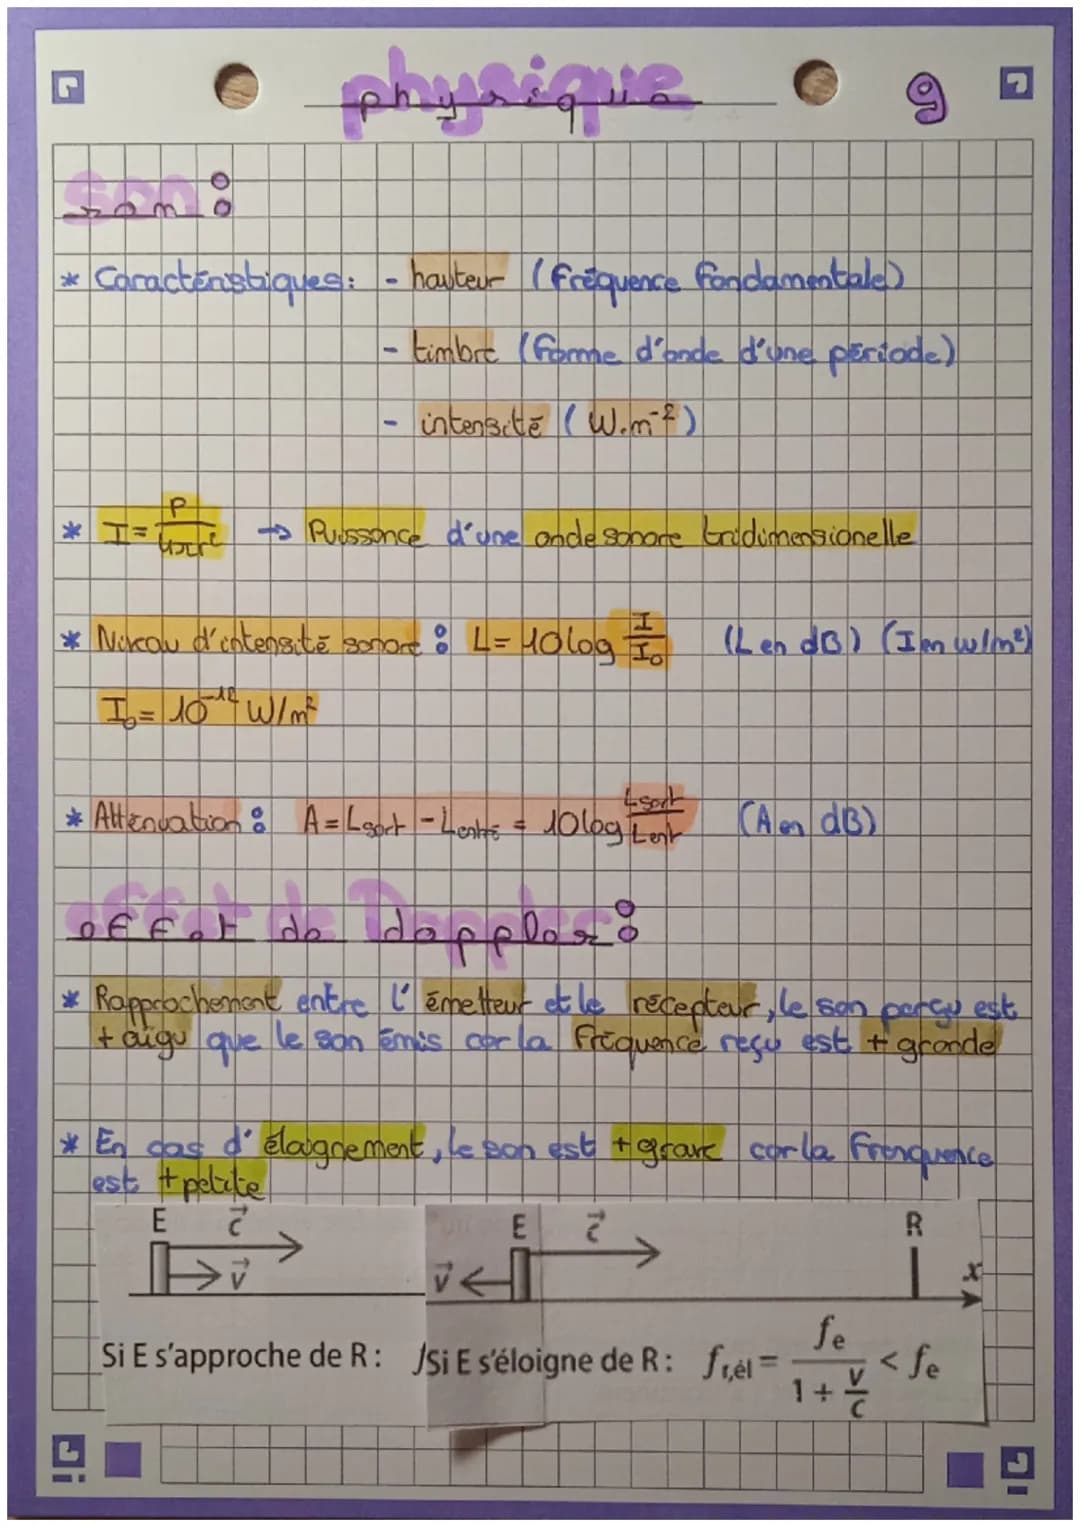 physique
9
son :
* Caractéristiques : - hauteur (fréquence fondamentale)
- timbre (forme d'onde d'une période)
- intensité (W.m⁻²)
* I = P/4πr² → Puissance d'une onde sonore tridimensionelle
* Niveau d'intensité sonore : L = 10log I/I₀ (L en dB) (I en W/m²)
I₀ = 10⁻¹² W/m²
* Attenuation : A = Lsort - Lentré = 10log Lsort/Lent (A en dB)
effet de Doppler :
* Rapprochement entre l'émetteur et le récepteur, le son perçu est
+ aigu que le son émis car la fréquence reçu est + grande
* En cas d'éloignement, le son est + grave car la frenquence
est + petite
E c⃗ E c⃗ R
v⃗ v⃗ x
Si E s'approche de R : Si E s'éloigne de R : f r,él = fe/(1 + v/c) < fe